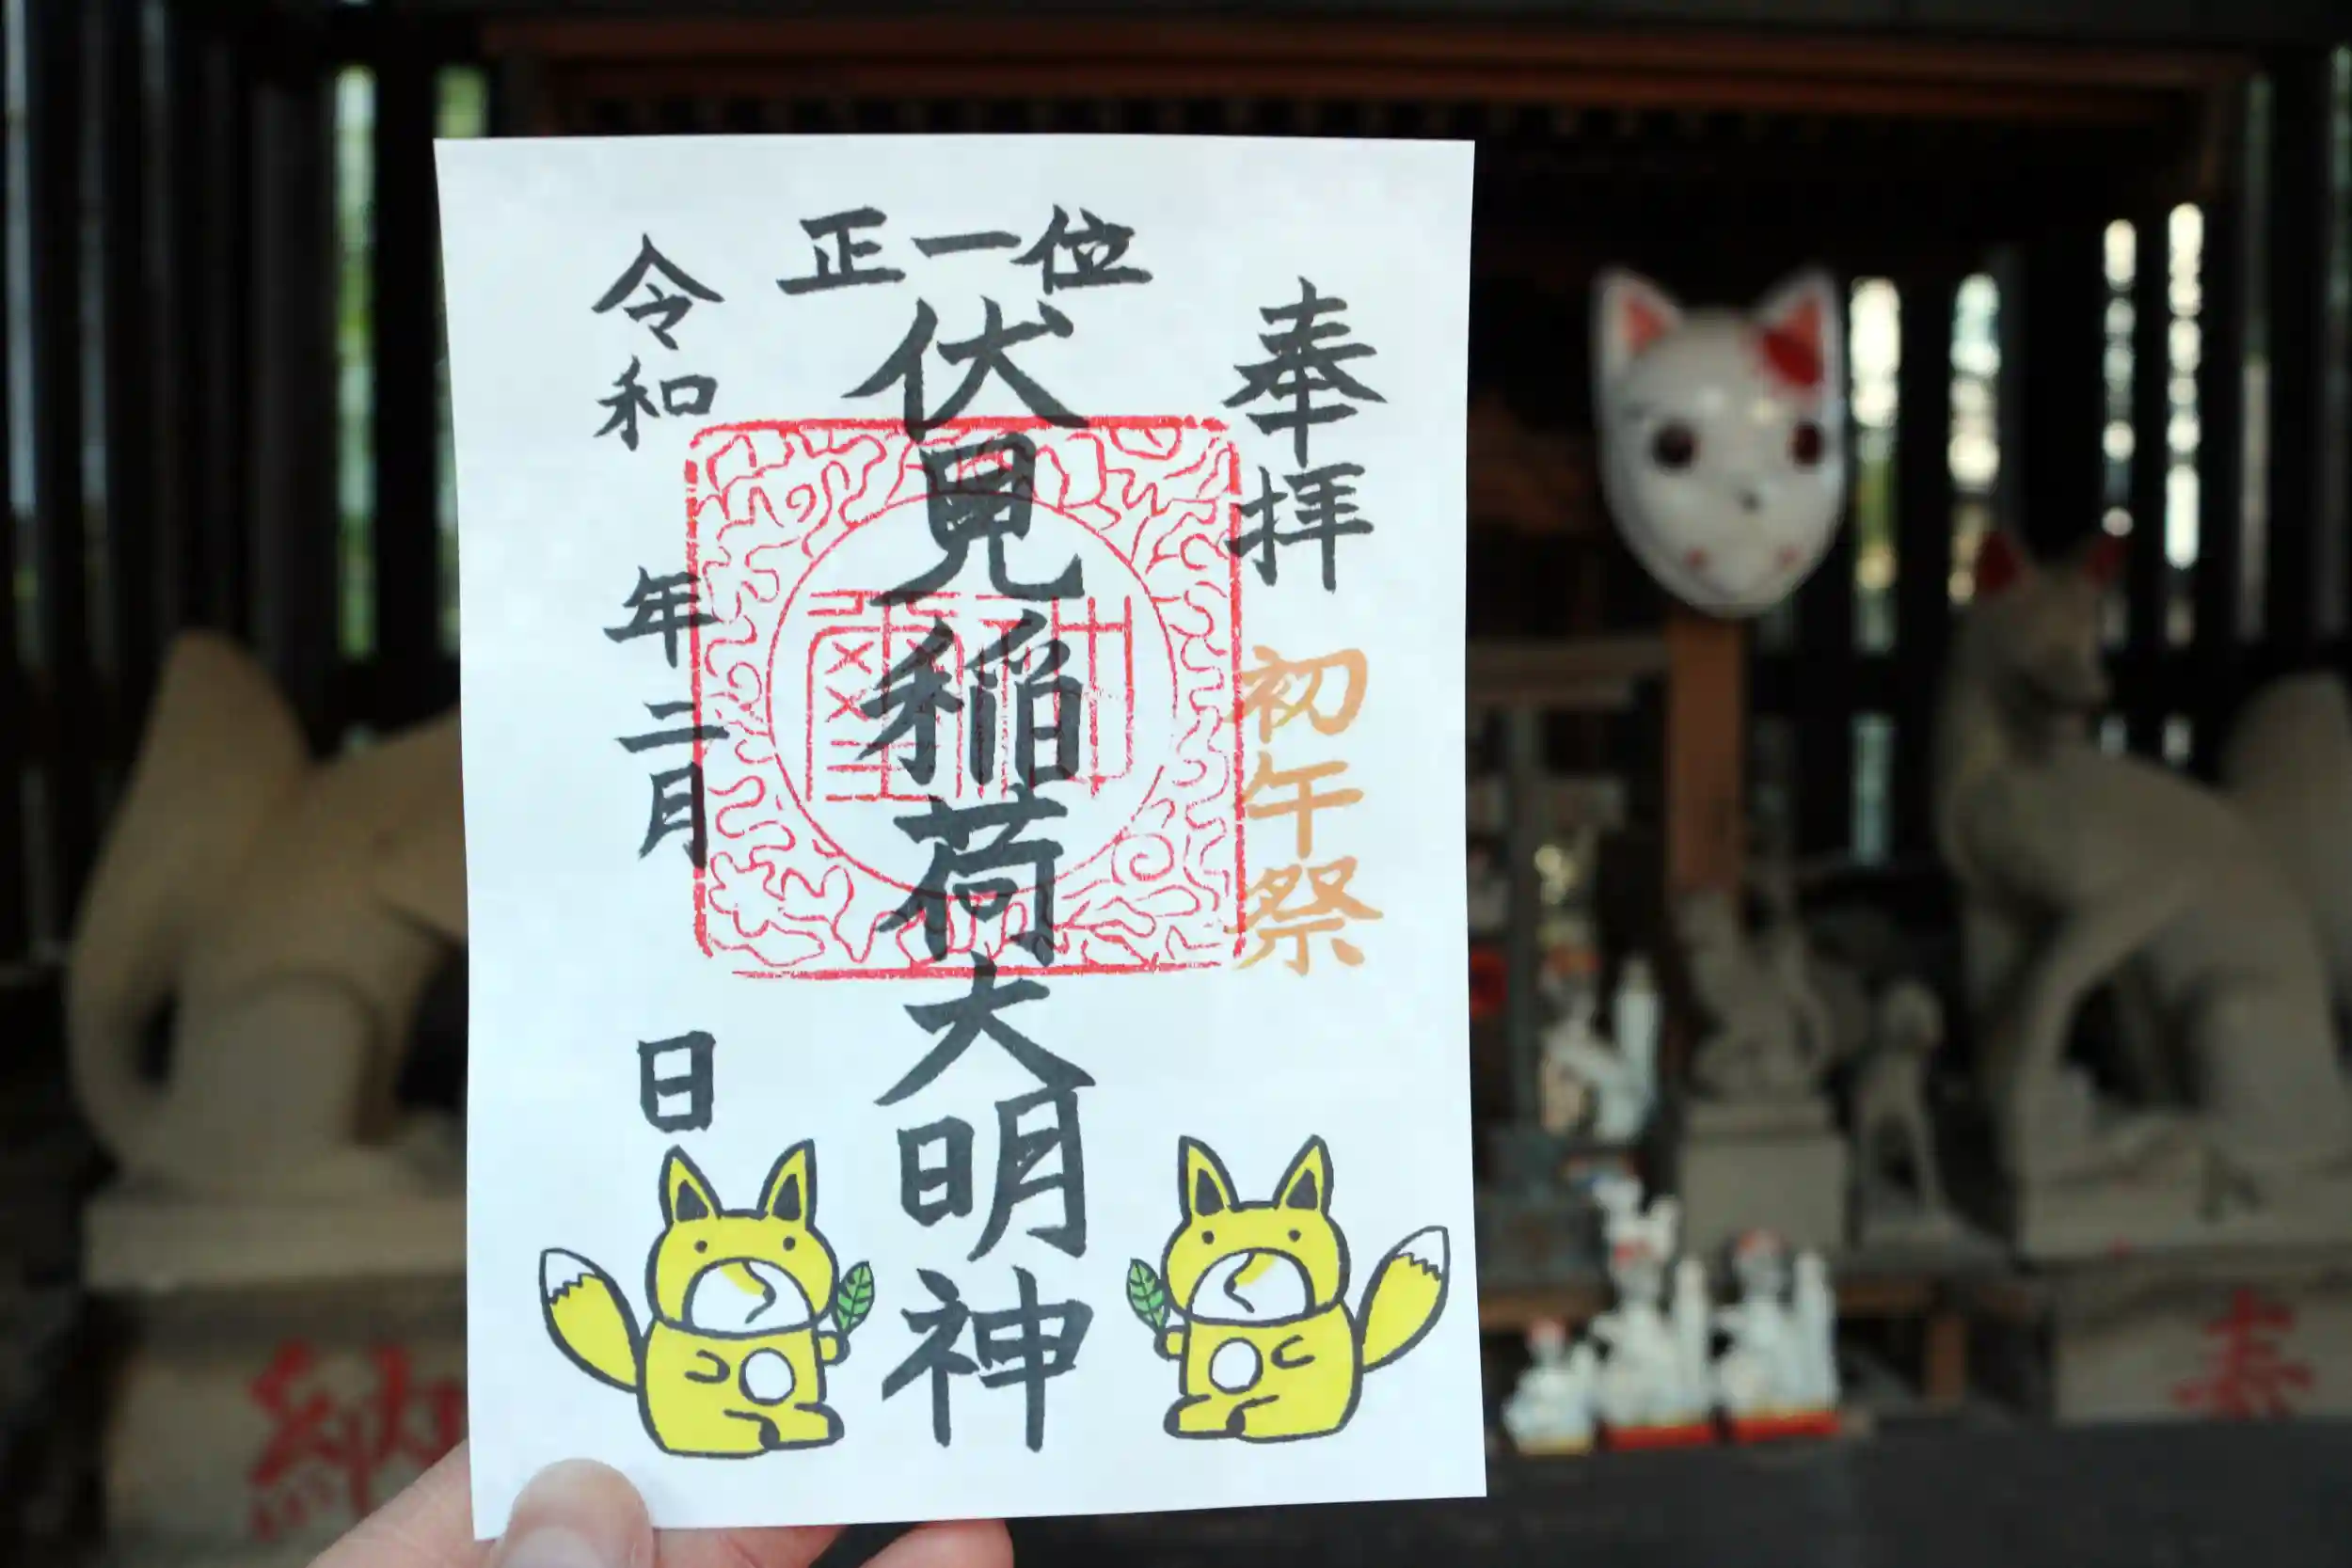 奉拝
初午祭
正一位
伏見稲荷大明神
令和 年二月 日
神璽
納
奉